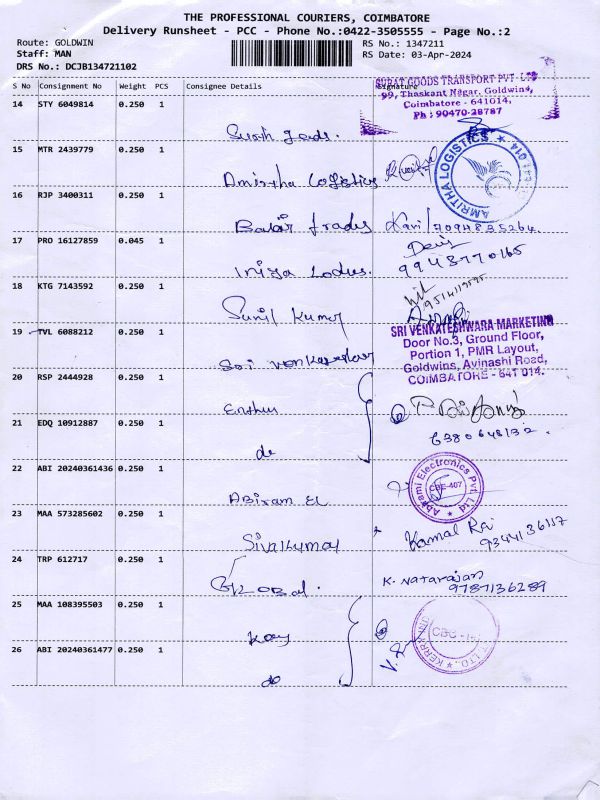 THE PROFESSIONAL COURIERS, COIMBATORE
Delivery Runsheet - PCC - Phone No.:0422-3505555 - Page No.:2
Route: GOLDWIN
RS No.: 1347211
Staff: MAN
RS Date: 03-Apr-2024
DRS No.: DCJB134721102
S No Consignment No Weight PCS Consignee Details Signature
SURAT GOODS TRANSPORT PVT LTD
99, Thaskant Nagar, Goldwins,
Coimbatore - 641014.
Ph : 90470-28787
14 STY 6049814 0.250 1
15 MTR 2439779 0.250 1
Amirtha Logistics
AMRITHA LOGISTICS
16 RJP 3400311 0.250 1
Balaji trades Kavi / 7094835264
17 PRO 16127859 0.045 1
Iniya Lodus.
9943770165
18 KTG 7143592 0.250 1
9514119595
Sunil Kumar
19 TVL 6088212 0.250 1
SRI VENKATESHWARA MARKETING
Door No.3, Ground Floor,
Portion 1, PMR Layout,
Goldwins, Avinashi Road,
COIMBATORE - 641 014.
Sri Venkateshwar
20 RSP 2444928 0.250 1
21 EDQ 10912887 0.250 1
do
22 ABI 20240361436 0.250 1
Abiram El
Abirami Electronics Pvt. Ltd
CBE-407
23 MAA 573285602 0.250 1
Sivakumar Kamal Raj
9344136117
24 TRP 612717 0.250 1
Global. K. Natarajan
9787136289
25 MAA 108395503 0.250 1
26 ABI 20240361477 0.250 1
do